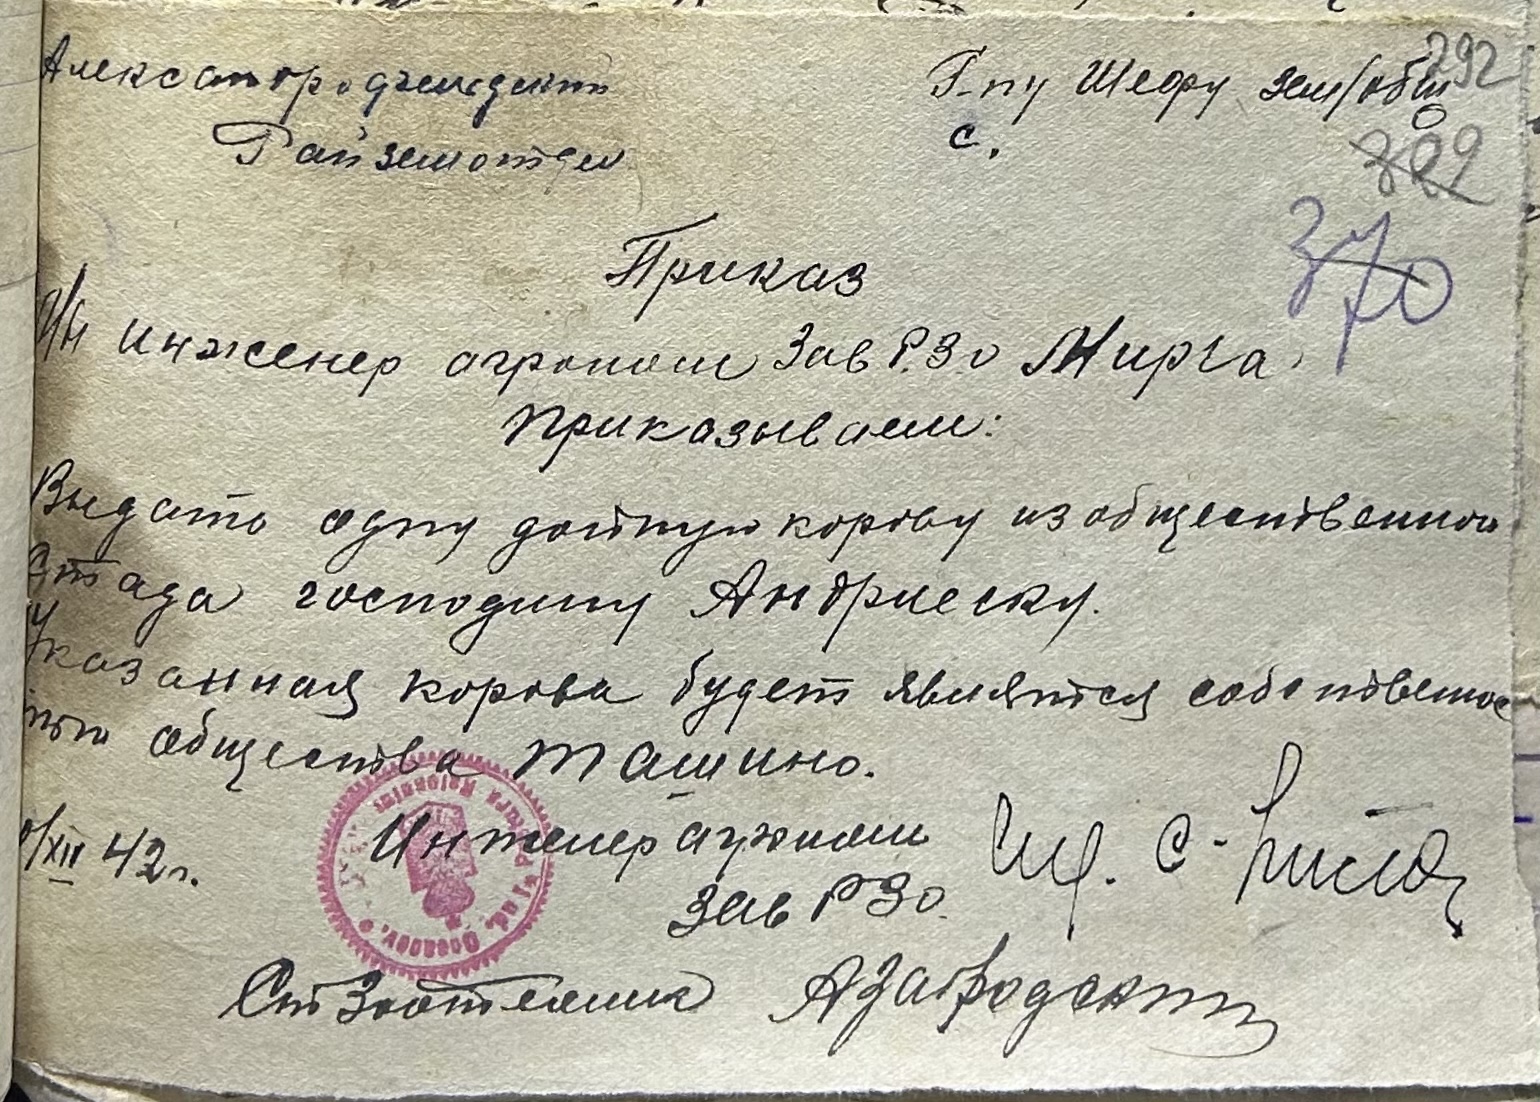 Александродженский
Райземотдел
Г-ну Шефу зем/общ
с.
292
322
370
Приказ
Мы инженер агроном Зав Р.З.о Мирга
приказываем:
Выдать одну дойную корову из общественного
стада господину Андриеску.
Указанная корова будет являтся собственнос
тью общества Ташино.
/XII 42 г.
Инженер агроном
Зав РЗо.
Ст Зоотехник
АЗагродский